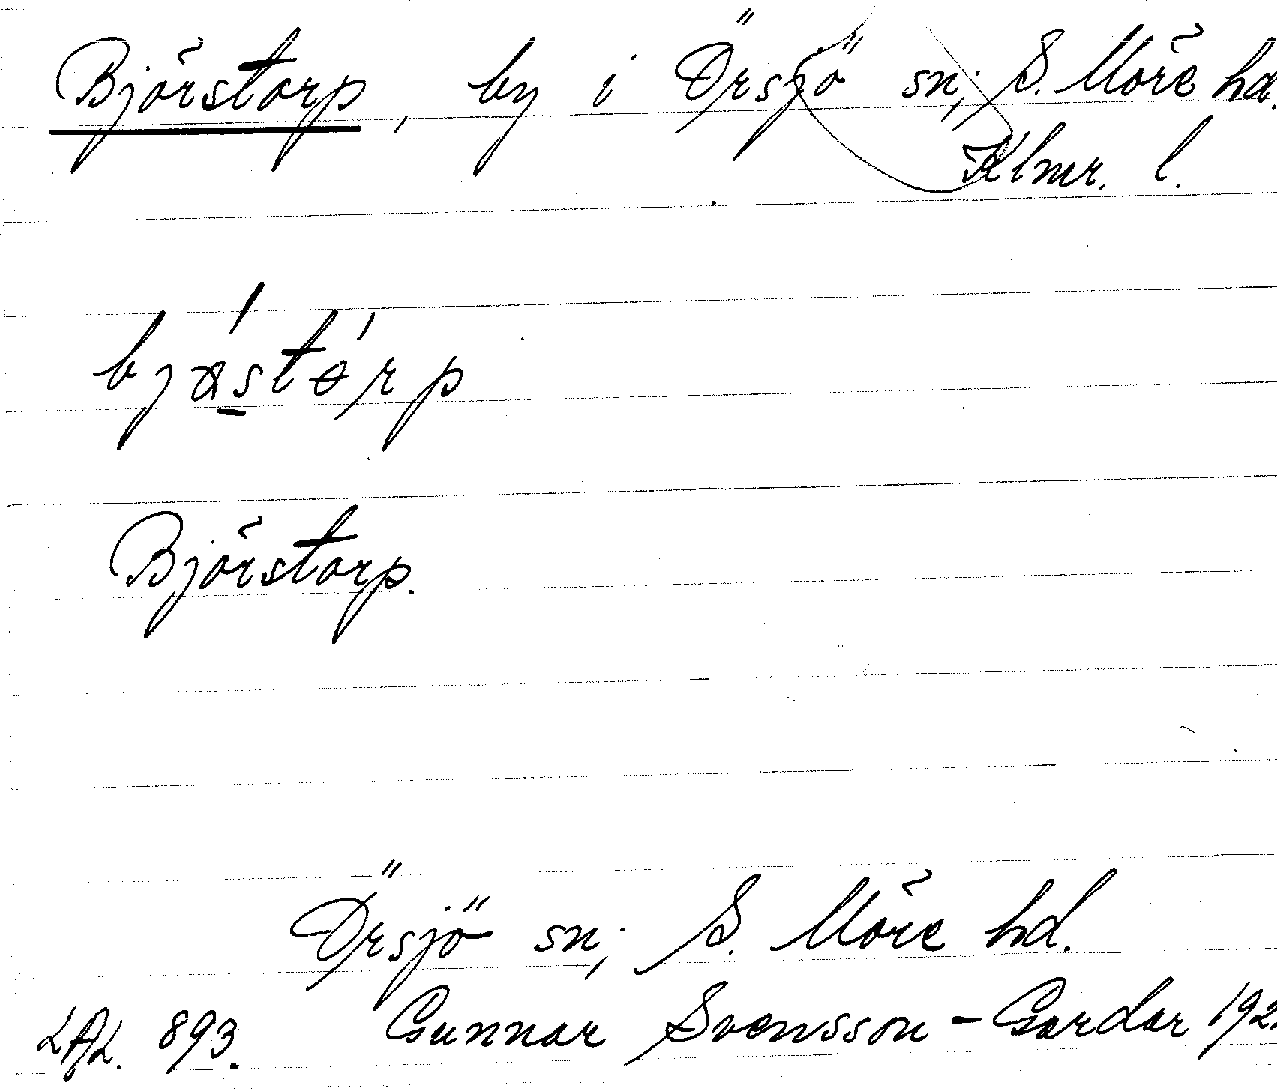 Björstorp, by i Örsjö sn; S. Möre hd.
Klmr. l.
Björstorp.
Örsjö sn; S. Möre hd.
LAL. 893. Gunnar Svensson - Gardar